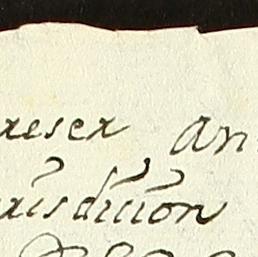 reser an
risdicion